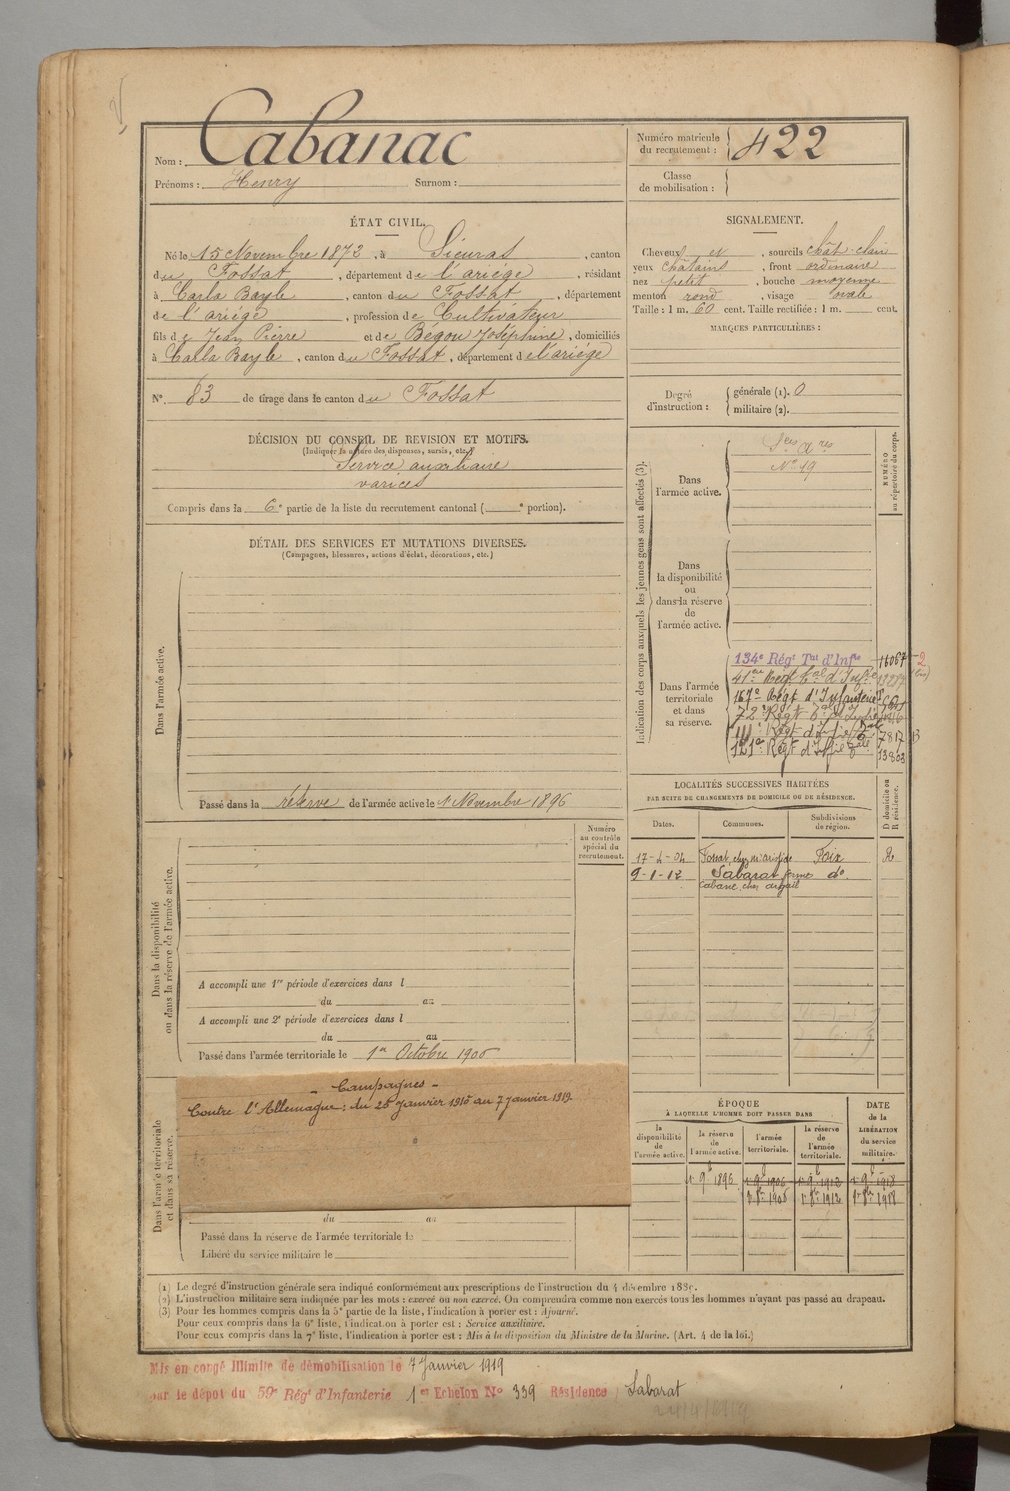 Nom : Cabanac
Prénoms : Henry Surnom :
Numéro matricule
du recrutement : 422
Classe
de mobilisation :
ÉTAT CIVIL.
Né le 15 Novembre 1872, à Sieuras, canton
du Fossat, département de l'ariège, résidant
à Carla Bayle, canton du Fossat, département
de l'ariège, profession de Cultivateur
fils de Jean Pierre et de Bégou Joséphine, domiciliés
à Carla Bayle, canton du Fossat, département de l'ariége
N° 83 de tirage dans le canton du Fossat
SIGNALEMENT.
Cheveux et, sourcils chât-clair
yeux châtains, front ordinaire
nez petit, bouche moyenne
menton rond, visage ovale
Taille : 1 m. 60 cent. Taille rectifiée : 1 m. cent.
MARQUES PARTICULIÈRES :
Degré
d'instruction :
générale (1). 0
militaire (2).
DÉCISION DU CONSEIL DE REVISION ET MOTIFS.
(Indiquer la nature des dispenses, sursis, etc.)
Service auxiliaire
varices
Compris dans la 6e partie de la liste du recrutement cantonal ( e portion).
DÉTAIL DES SERVICES ET MUTATIONS DIVERSES.
(Campagnes, blessures, actions d'éclat, décorations, etc.)
Dans l'armée active.
Passé dans la réserve de l'armée active le 1 Novembre 1896
Indication des corps auxquels les jeunes gens sont affectés (3).
NUMÉRO
au répertoire du corps.
Dans
l'armée active.
N° 19
Dans
la disponibilité
ou
dans la réserve
de
l'armée active.
Dans l'armée
territoriale
et dans
sa réserve.
134e Régt Tal d'Infie 16067 2
41me Régt tal d'Infie
167e Régt d'Infanterie
72e Régt
111e Régt d'Infie 7817 B
121e Régt d'Infie 13803
LOCALITÉS SUCCESSIVES HABITÉES
PAR SUITE DE CHANGEMENTS DE DOMICILE OU DE RÉSIDENCE.
Dates. Communes. Subdivisions
de région.
D domicile ou
R résidence.
17-4-04 Fossat, chez Foix R
9-1-12 Sabarat ferme do
Cabane chez
Dans la disponibilité
ou dans la réserve de l'armée active.
Numéro
au contrôle
spécial du
recrutement.
A accompli une 1re période d'exercices dans l
du au
A accompli une 2e période d'exercices dans l
du au
Passé dans l'armée territoriale le 1er Octobre 1906
Dans l'armée territoriale
et dans sa réserve.
- Campagnes -
Contre l'Allemagne : du 25 Janvier 1915 au 7 janvier 1919
du au
Passé dans la réserve de l'armée territoriale le
Libéré du service militaire le
ÉPOQUE
À LAQUELLE L'HOMME DOIT PASSER DANS
DATE
de la
LIBÉRATION
du service
militaire.
la
disponibilité
de
l'armée active.
la réserve
de
l'armée active.
l'armée
territoriale.
la réserve
de
l'armée
territoriale.
1er 9bre 1896 1er 9bre 1906 1er 9bre 1912 1er 9bre 1918
1er 8bre 1906 1er 8bre 1912 1er 8bre 1918
(1) Le degré d'instruction générale sera indiqué conformément aux prescriptions de l'instruction du 4 décembre 1889.
(2) L'instruction militaire sera indiquée par les mots : exercé ou non exercé. On comprendra comme non exercés tous les hommes n'ayant pas passé au drapeau.
(3) Pour les hommes compris dans la 5e partie de la liste, l'indication à porter est : Ajourné.
Pour ceux compris dans la 6e liste, l'indication à porter est : Service auxiliaire.
Pour ceux compris dans la 7e liste, l'indication à porter est : Mis à la disposition du Ministre de la Marine. (Art. 4 de la loi.)
Mis en congé illimité de démobilisation le 7 Janvier 1919
par le dépôt du 59e Régt d'Infanterie 1er Echelon N° 339 Résidence : Sabarat